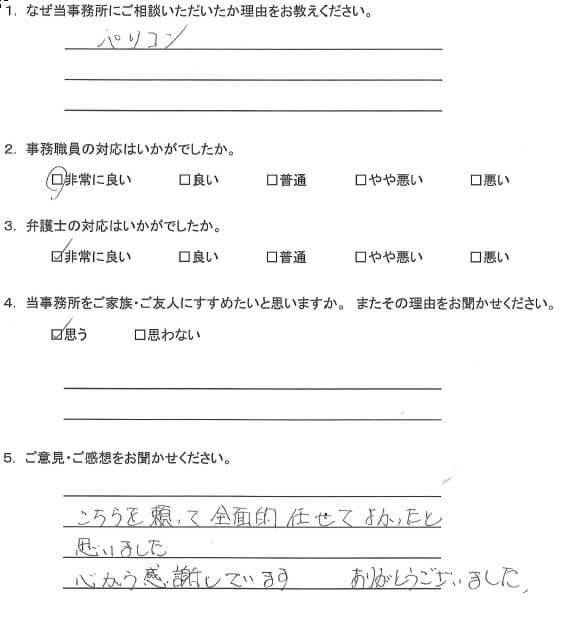 1. なぜ当事務所にご相談いただいたか理由をお教えください。
パソコン
2. 事務職員の対応はいかがでしたか。
□非常に良い □良い □普通 □やや悪い □悪い
3. 弁護士の対応はいかがでしたか。
☑非常に良い □良い □普通 □やや悪い □悪い
4. 当事務所をご家族・ご友人にすすめたいと思いますか。 またその理由をお聞かせください。
☑思う □思わない
5. ご意見・ご感想をお聞かせください。
こちらを頼って全面的任せてよかったと
思いました
心から感謝しています ありがとうございました。